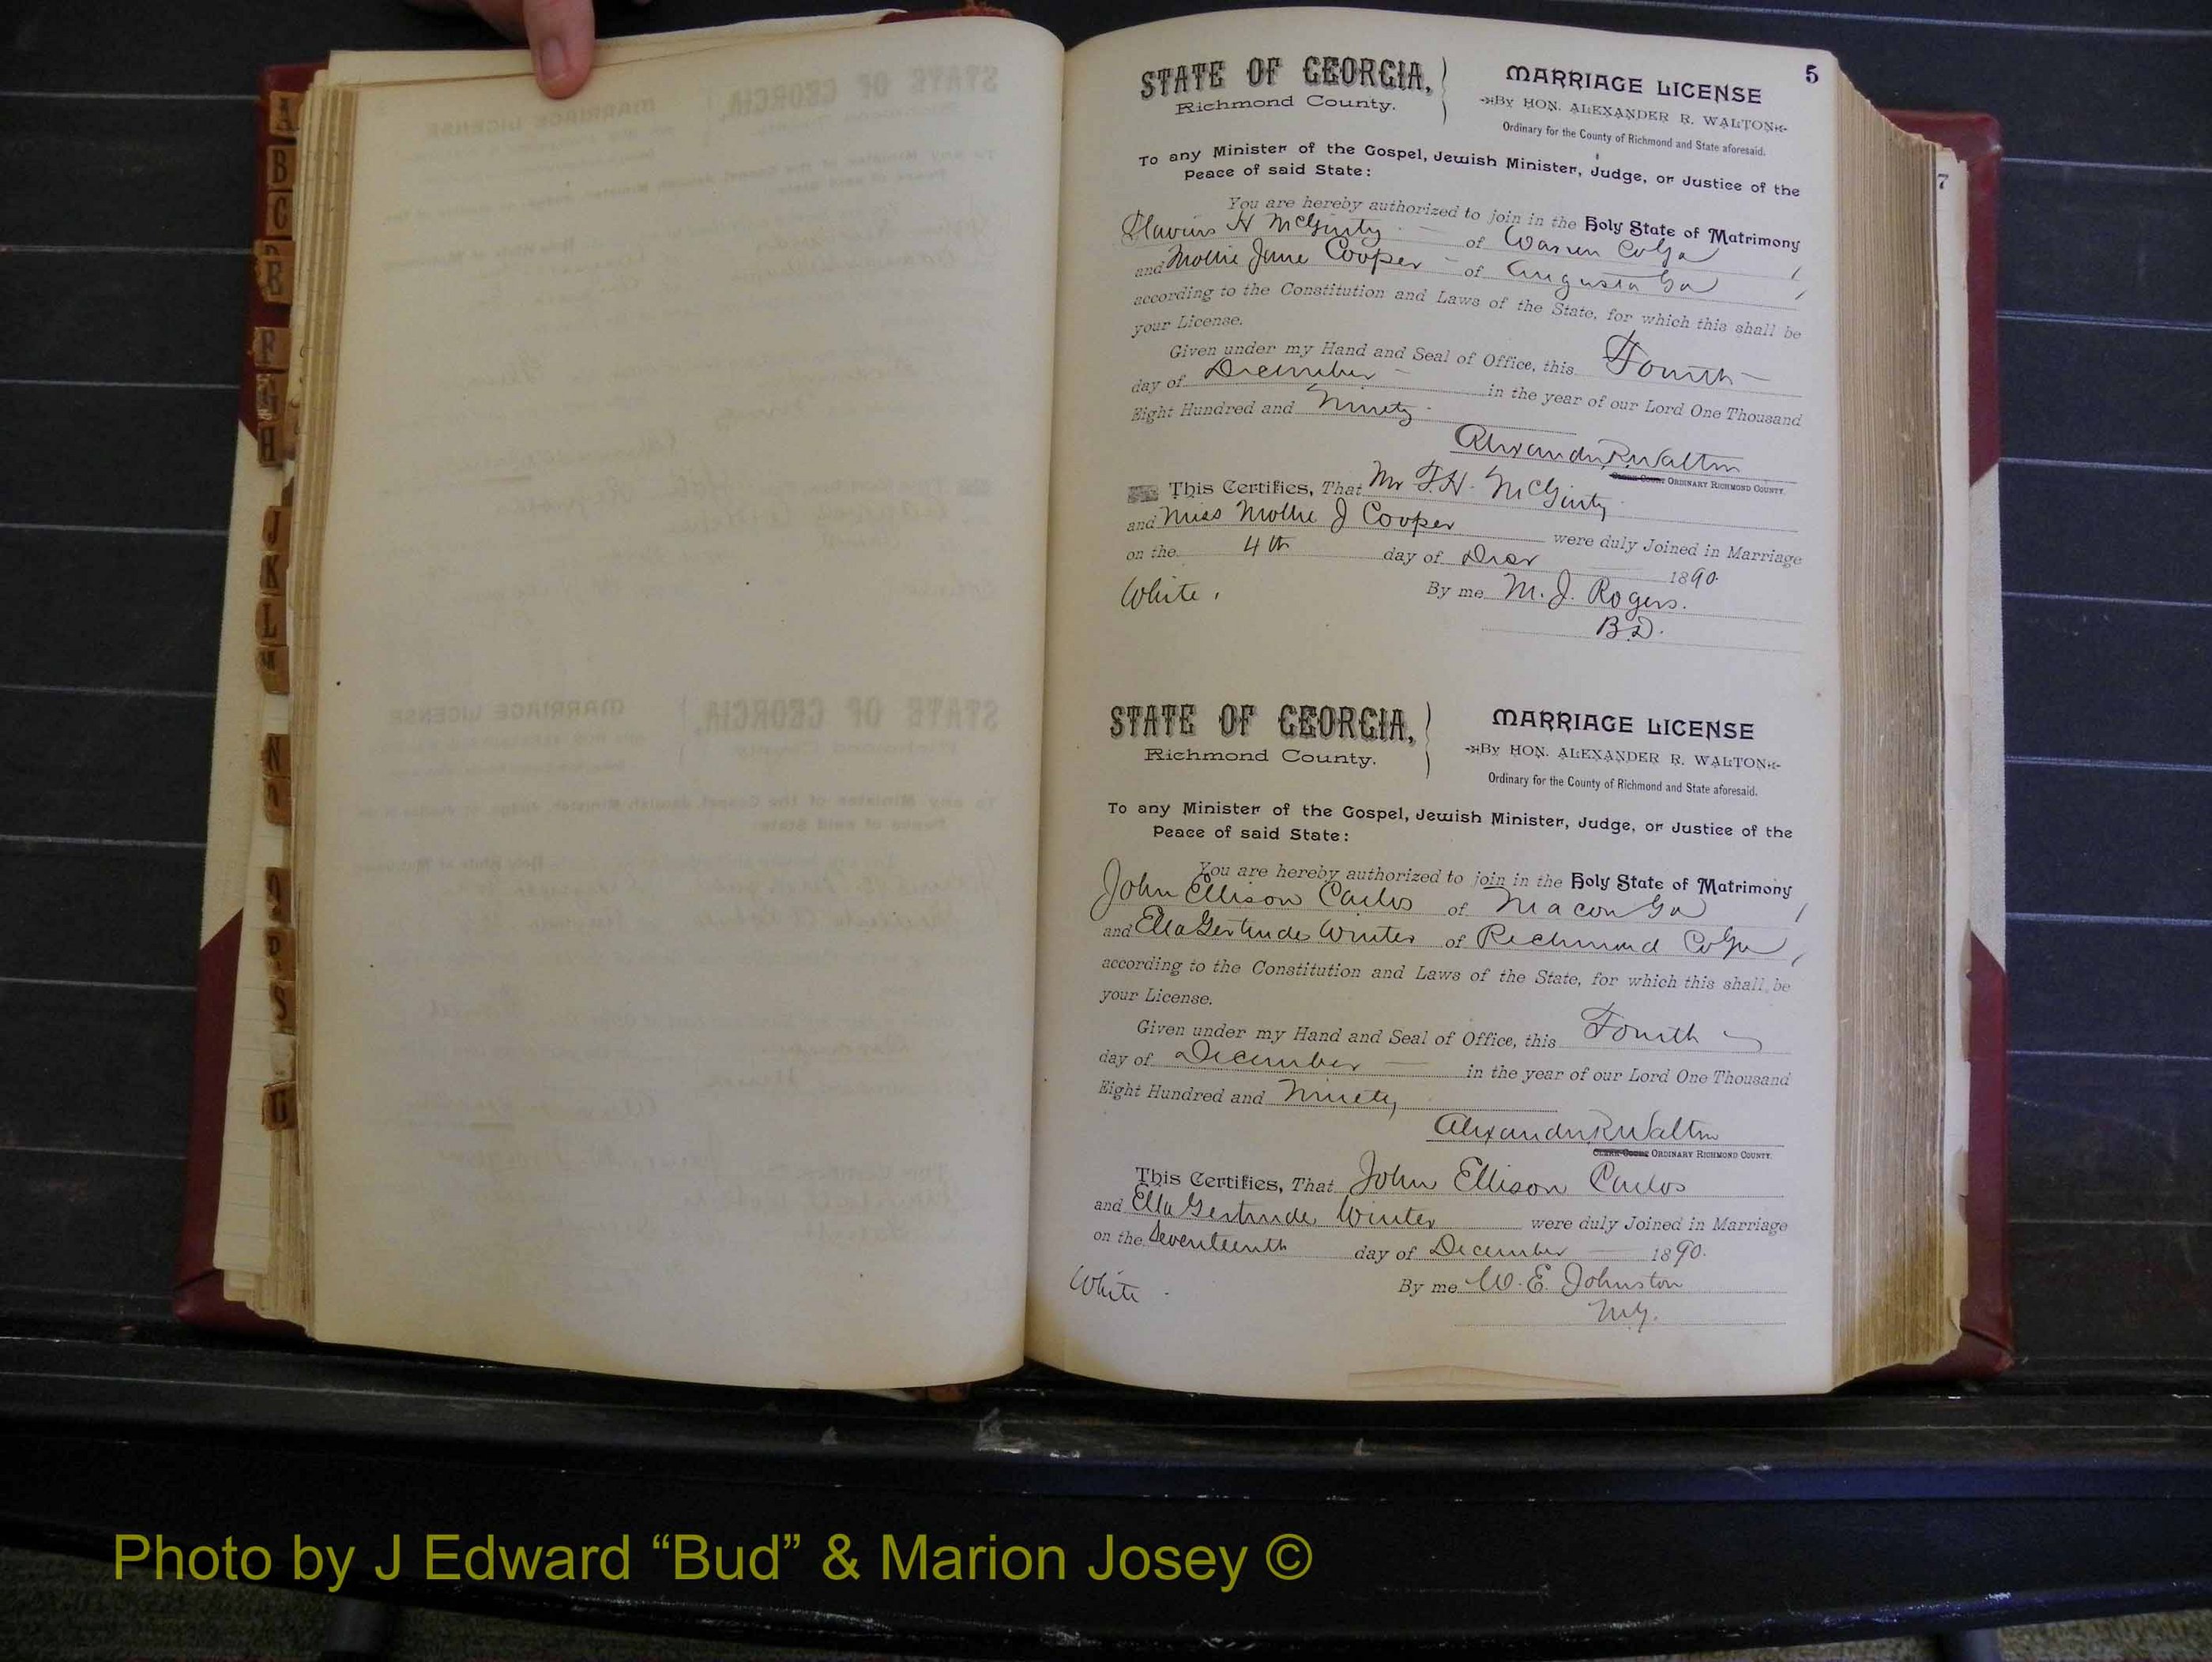 5
STATE OF GEORGIA,
Richmond County.
MARRIAGE LICENSE
By HON. ALEXANDER R. WALTON
Ordinary for the County of Richmond and State aforesaid.
To any Minister of the Gospel, Jewish Minister, Judge, or Justice of the
Peace of said State:
You are hereby authorized to join in the Holy State of Matrimony
Flavius H McGinty of Warren Co Ga
and Mollie Jane Cooper of Augusta Ga
according to the Constitution and Laws of the State, for which this shall be
your License.
Given under my Hand and Seal of Office, this Fourth
day of December in the year of our Lord One Thousand
Eight Hundred and Ninety
Alexander R Walton
Clerk Court ORDINARY RICHMOND COUNTY.
This Certifies, That Mr F. H. McGinty
and Miss Mollie J Cooper were duly Joined in Marriage
on the 4th day of Decr 1890.
White. By me M. J. Rogers.
B.D.
STATE OF GEORGIA,
Richmond County.
MARRIAGE LICENSE
By HON. ALEXANDER R. WALTON
Ordinary for the County of Richmond and State aforesaid.
To any Minister of the Gospel, Jewish Minister, Judge, or Justice of the
Peace of said State:
You are hereby authorized to join in the Holy State of Matrimony
John Ellison Carlos of Macon Ga
and Ella Gertrude Winter of Richmond Co Ga
according to the Constitution and Laws of the State, for which this shall be
your License.
Given under my Hand and Seal of Office, this Fourth
day of December in the year of our Lord One Thousand
Eight Hundred and Ninety
Alexander R Walton
Clerk Court ORDINARY RICHMOND COUNTY.
This Certifies, That John Ellison Carlos
and Ella Gertrude Winter were duly Joined in Marriage
on the Seventeenth day of December 1890.
White By me W. E. Johnston
M.G.
7
A
B
C
F
H
J
K
L
M
N
P
S
Photo by J Edward “Bud” & Marion Josey ©